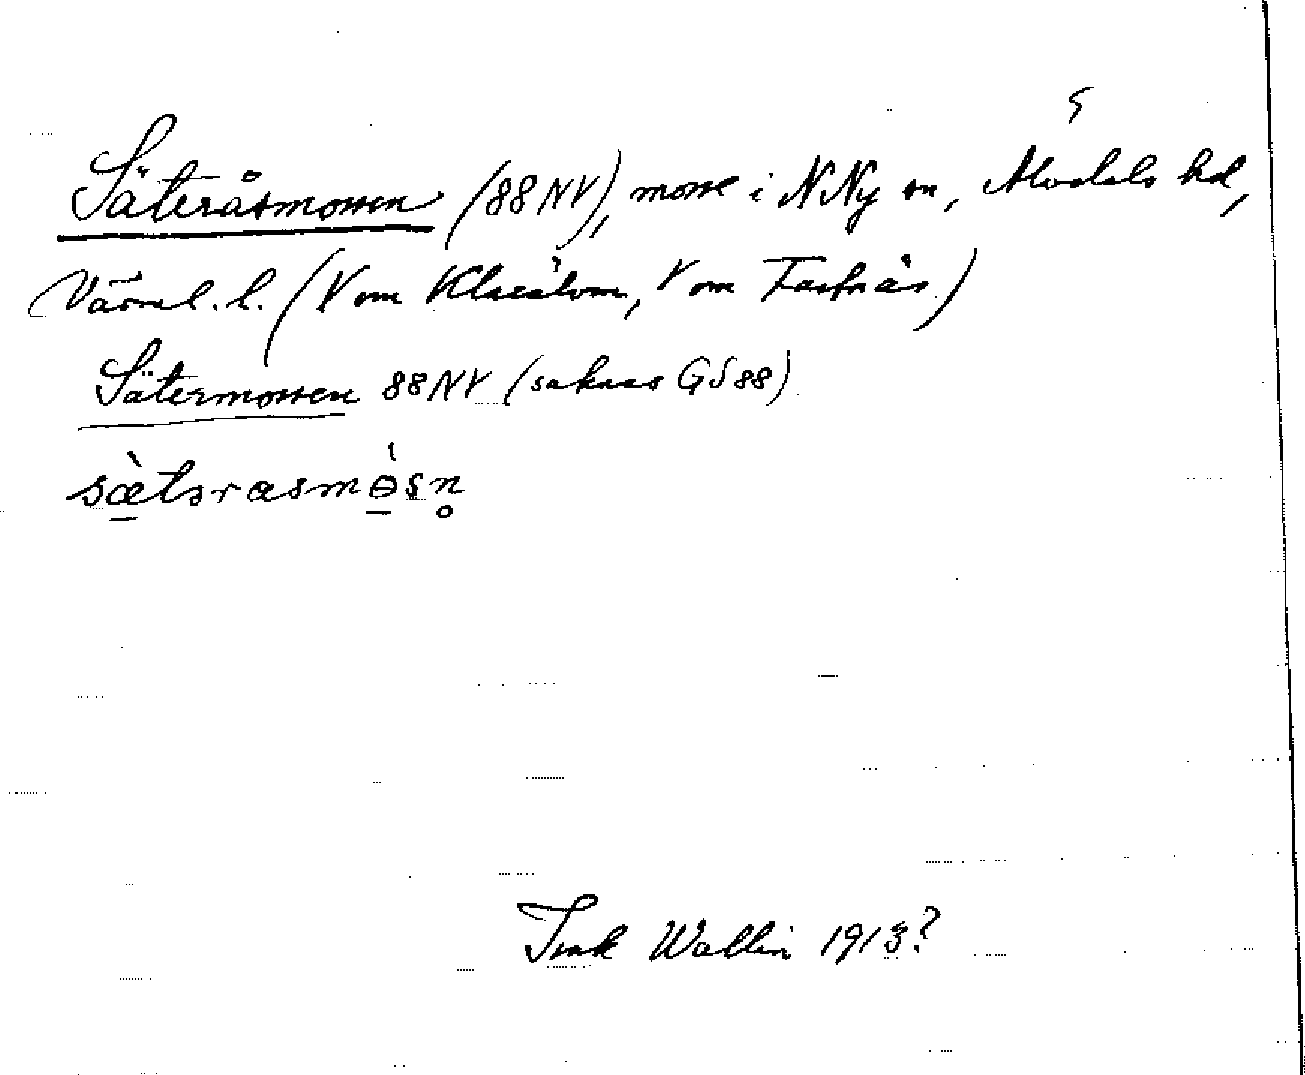 Säteråsmossen (88 NV), mosse i N Ny sn, Älvdals hd,
Värml. l. (V om Klarälven, V om Fastnäs)
Sätermossen 88 NV (saknas GS 88)
sæ̀tərasmɵ̀sn̥
Wallin 1913?